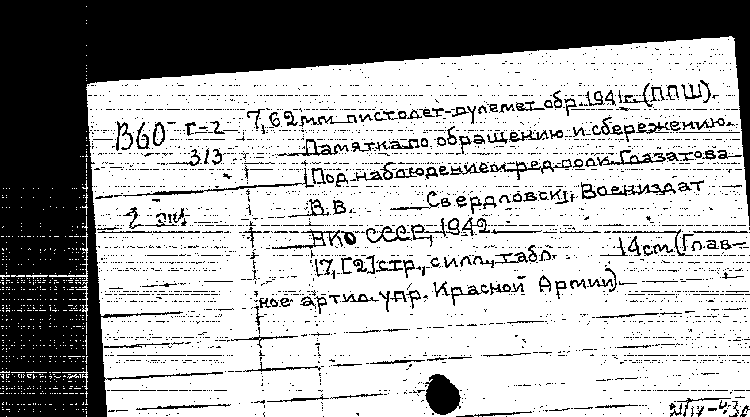 В60 г-2 7,62мм пистолет-пулемет обр. 1941г. (ППШ).
313 Памятка по обращению и сбережению.
Под наблюдением ред. поли. Глазатова
2 экз В.В. — Свердловск, Воениздат
НКО СССР, 1942.
17, [2] стр., с илл., табл. 14см. (Глав-
ное артил. упр. Красной Армии).